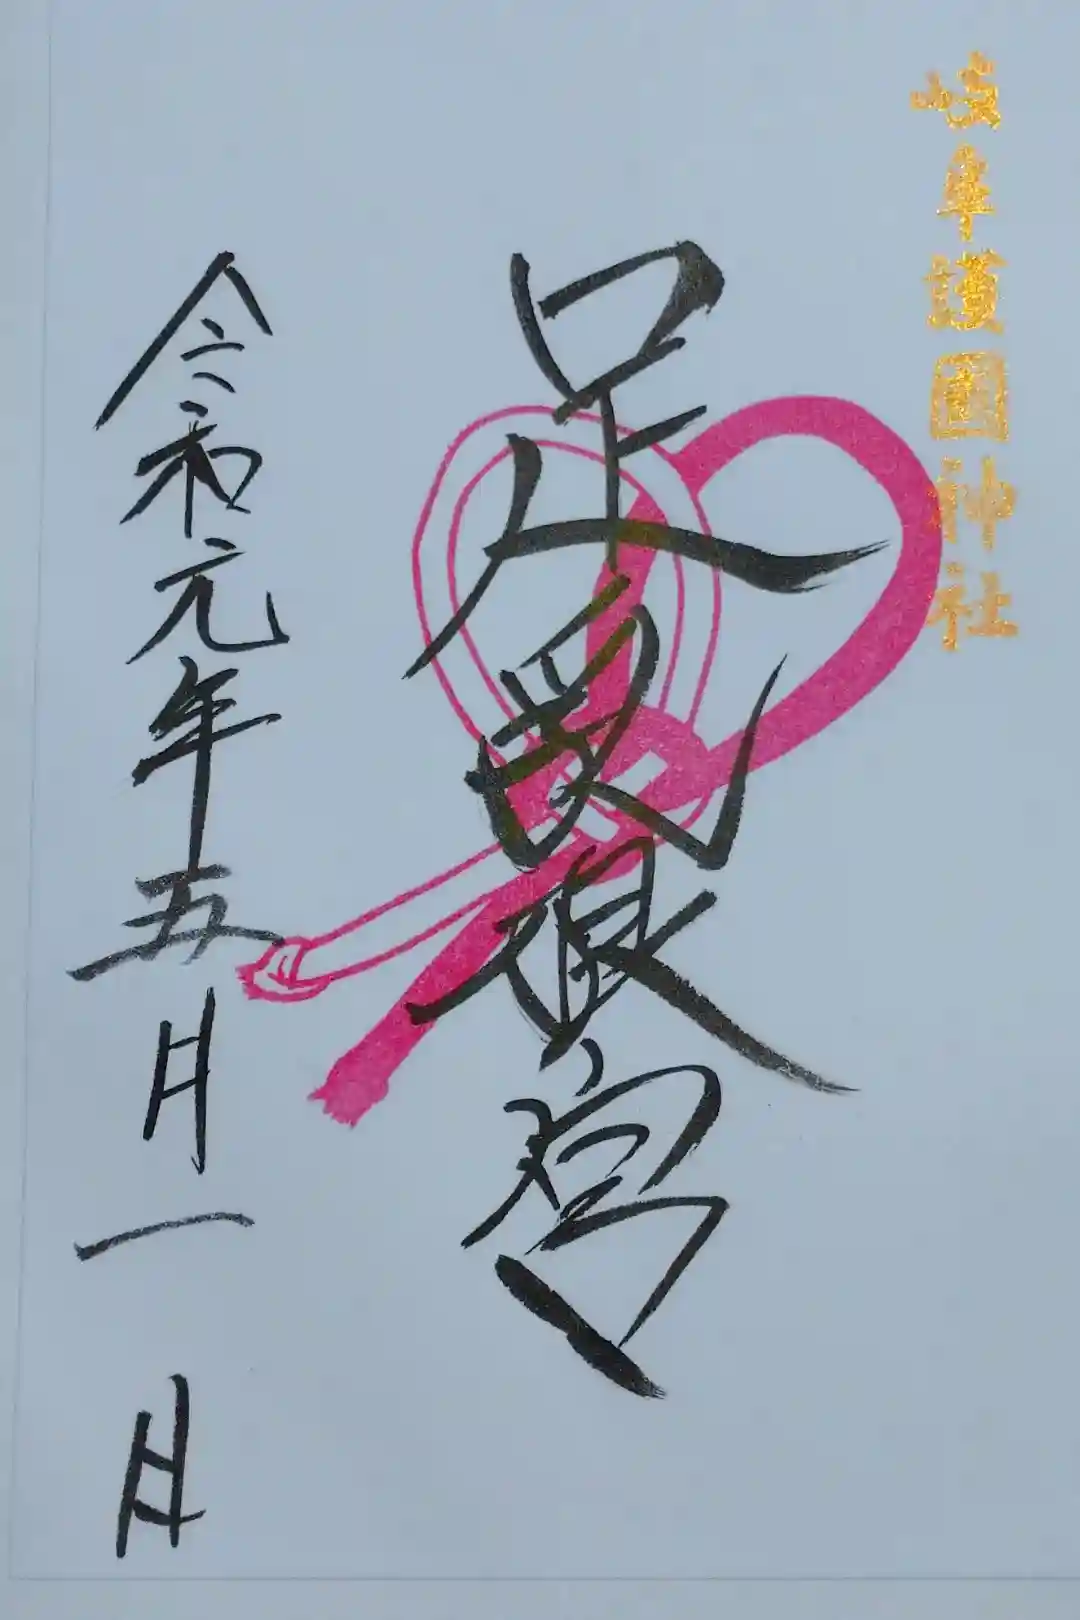 岐阜護國神社
足罠根宮
令和元年五月一日